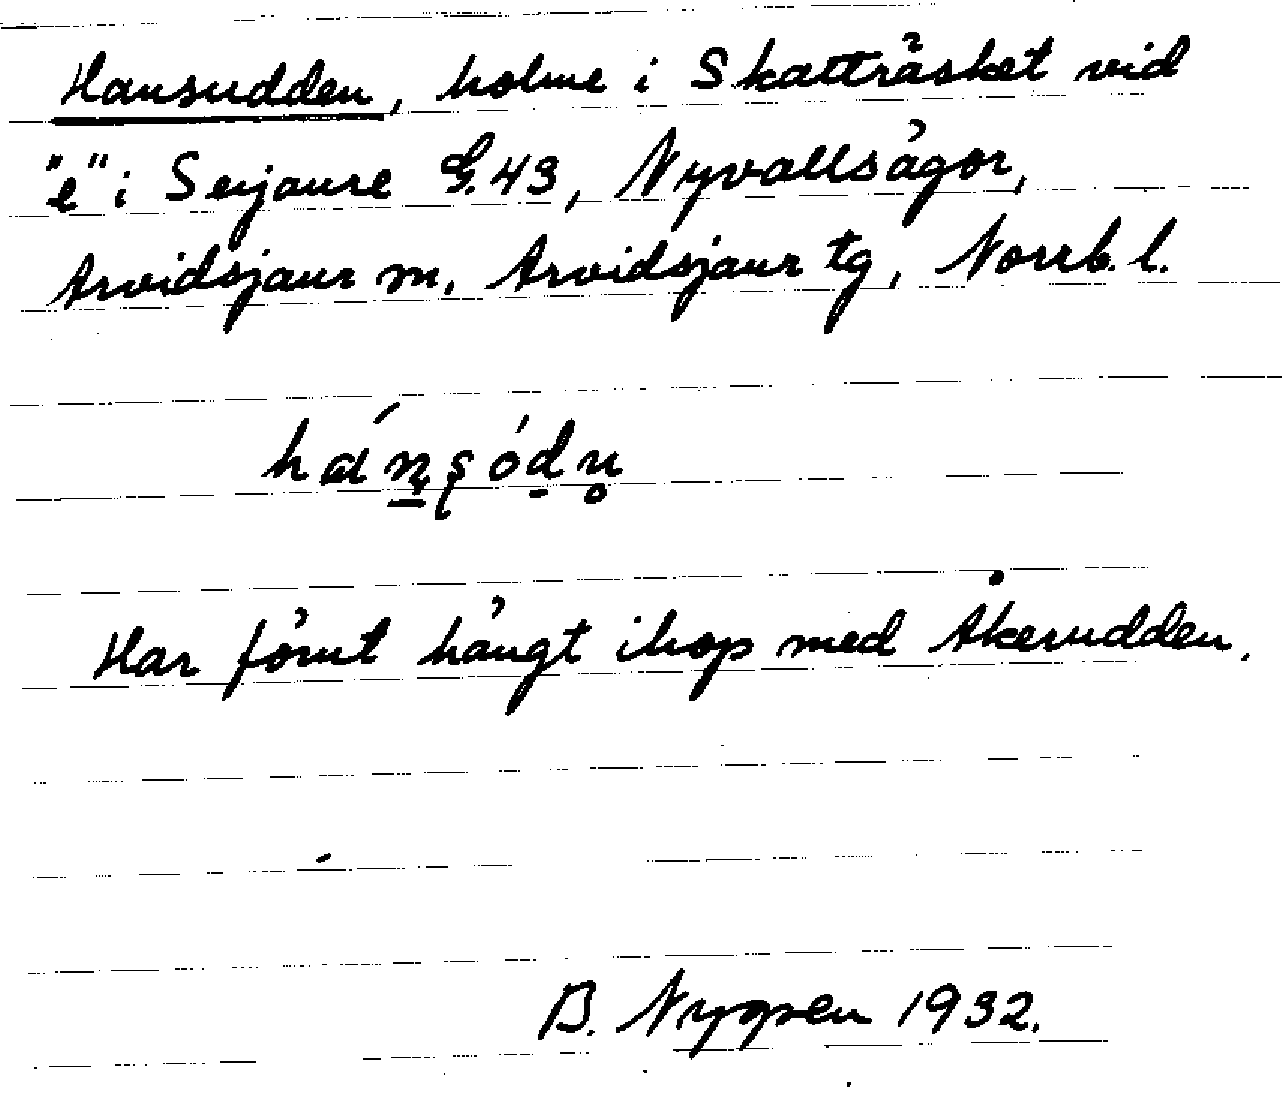 Hansudden, holme i Skatträsket vid
"e" i Serjaure G. 43, Nyvallsågor,
Arvidsjaur m. Arvidsjaur tg, Norrb. l.
Har förut hängt ihop med Åkerudden.
B. Nygren 1932.